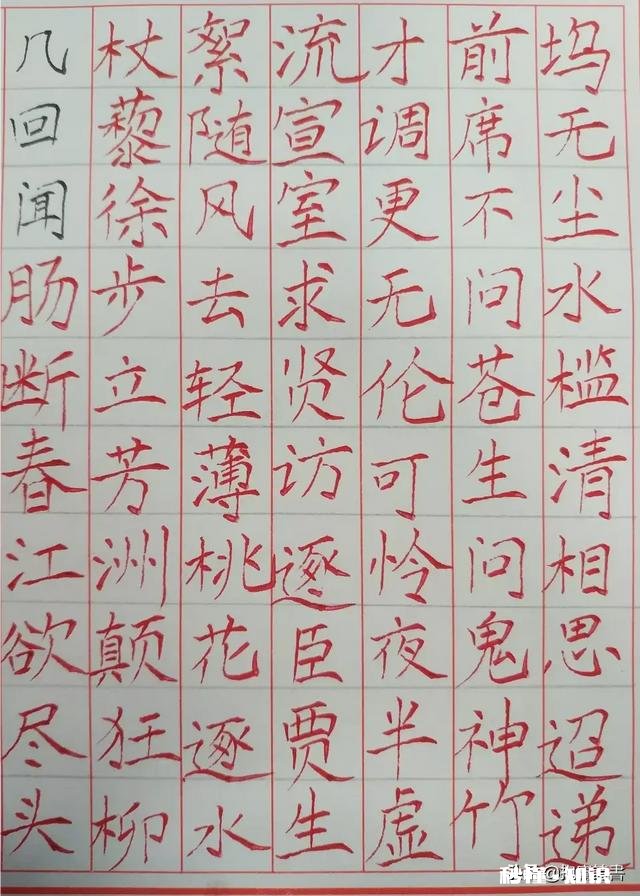 几回闻肠断春江欲尽头
杖藜徐步立芳洲颠狂柳
絮随风去轻薄桃花逐水
流宣室求贤访逐臣贾生
才调更无伦可怜夜半虚
前席不问苍生问鬼神竹
坞无尘水槛清相思迢递